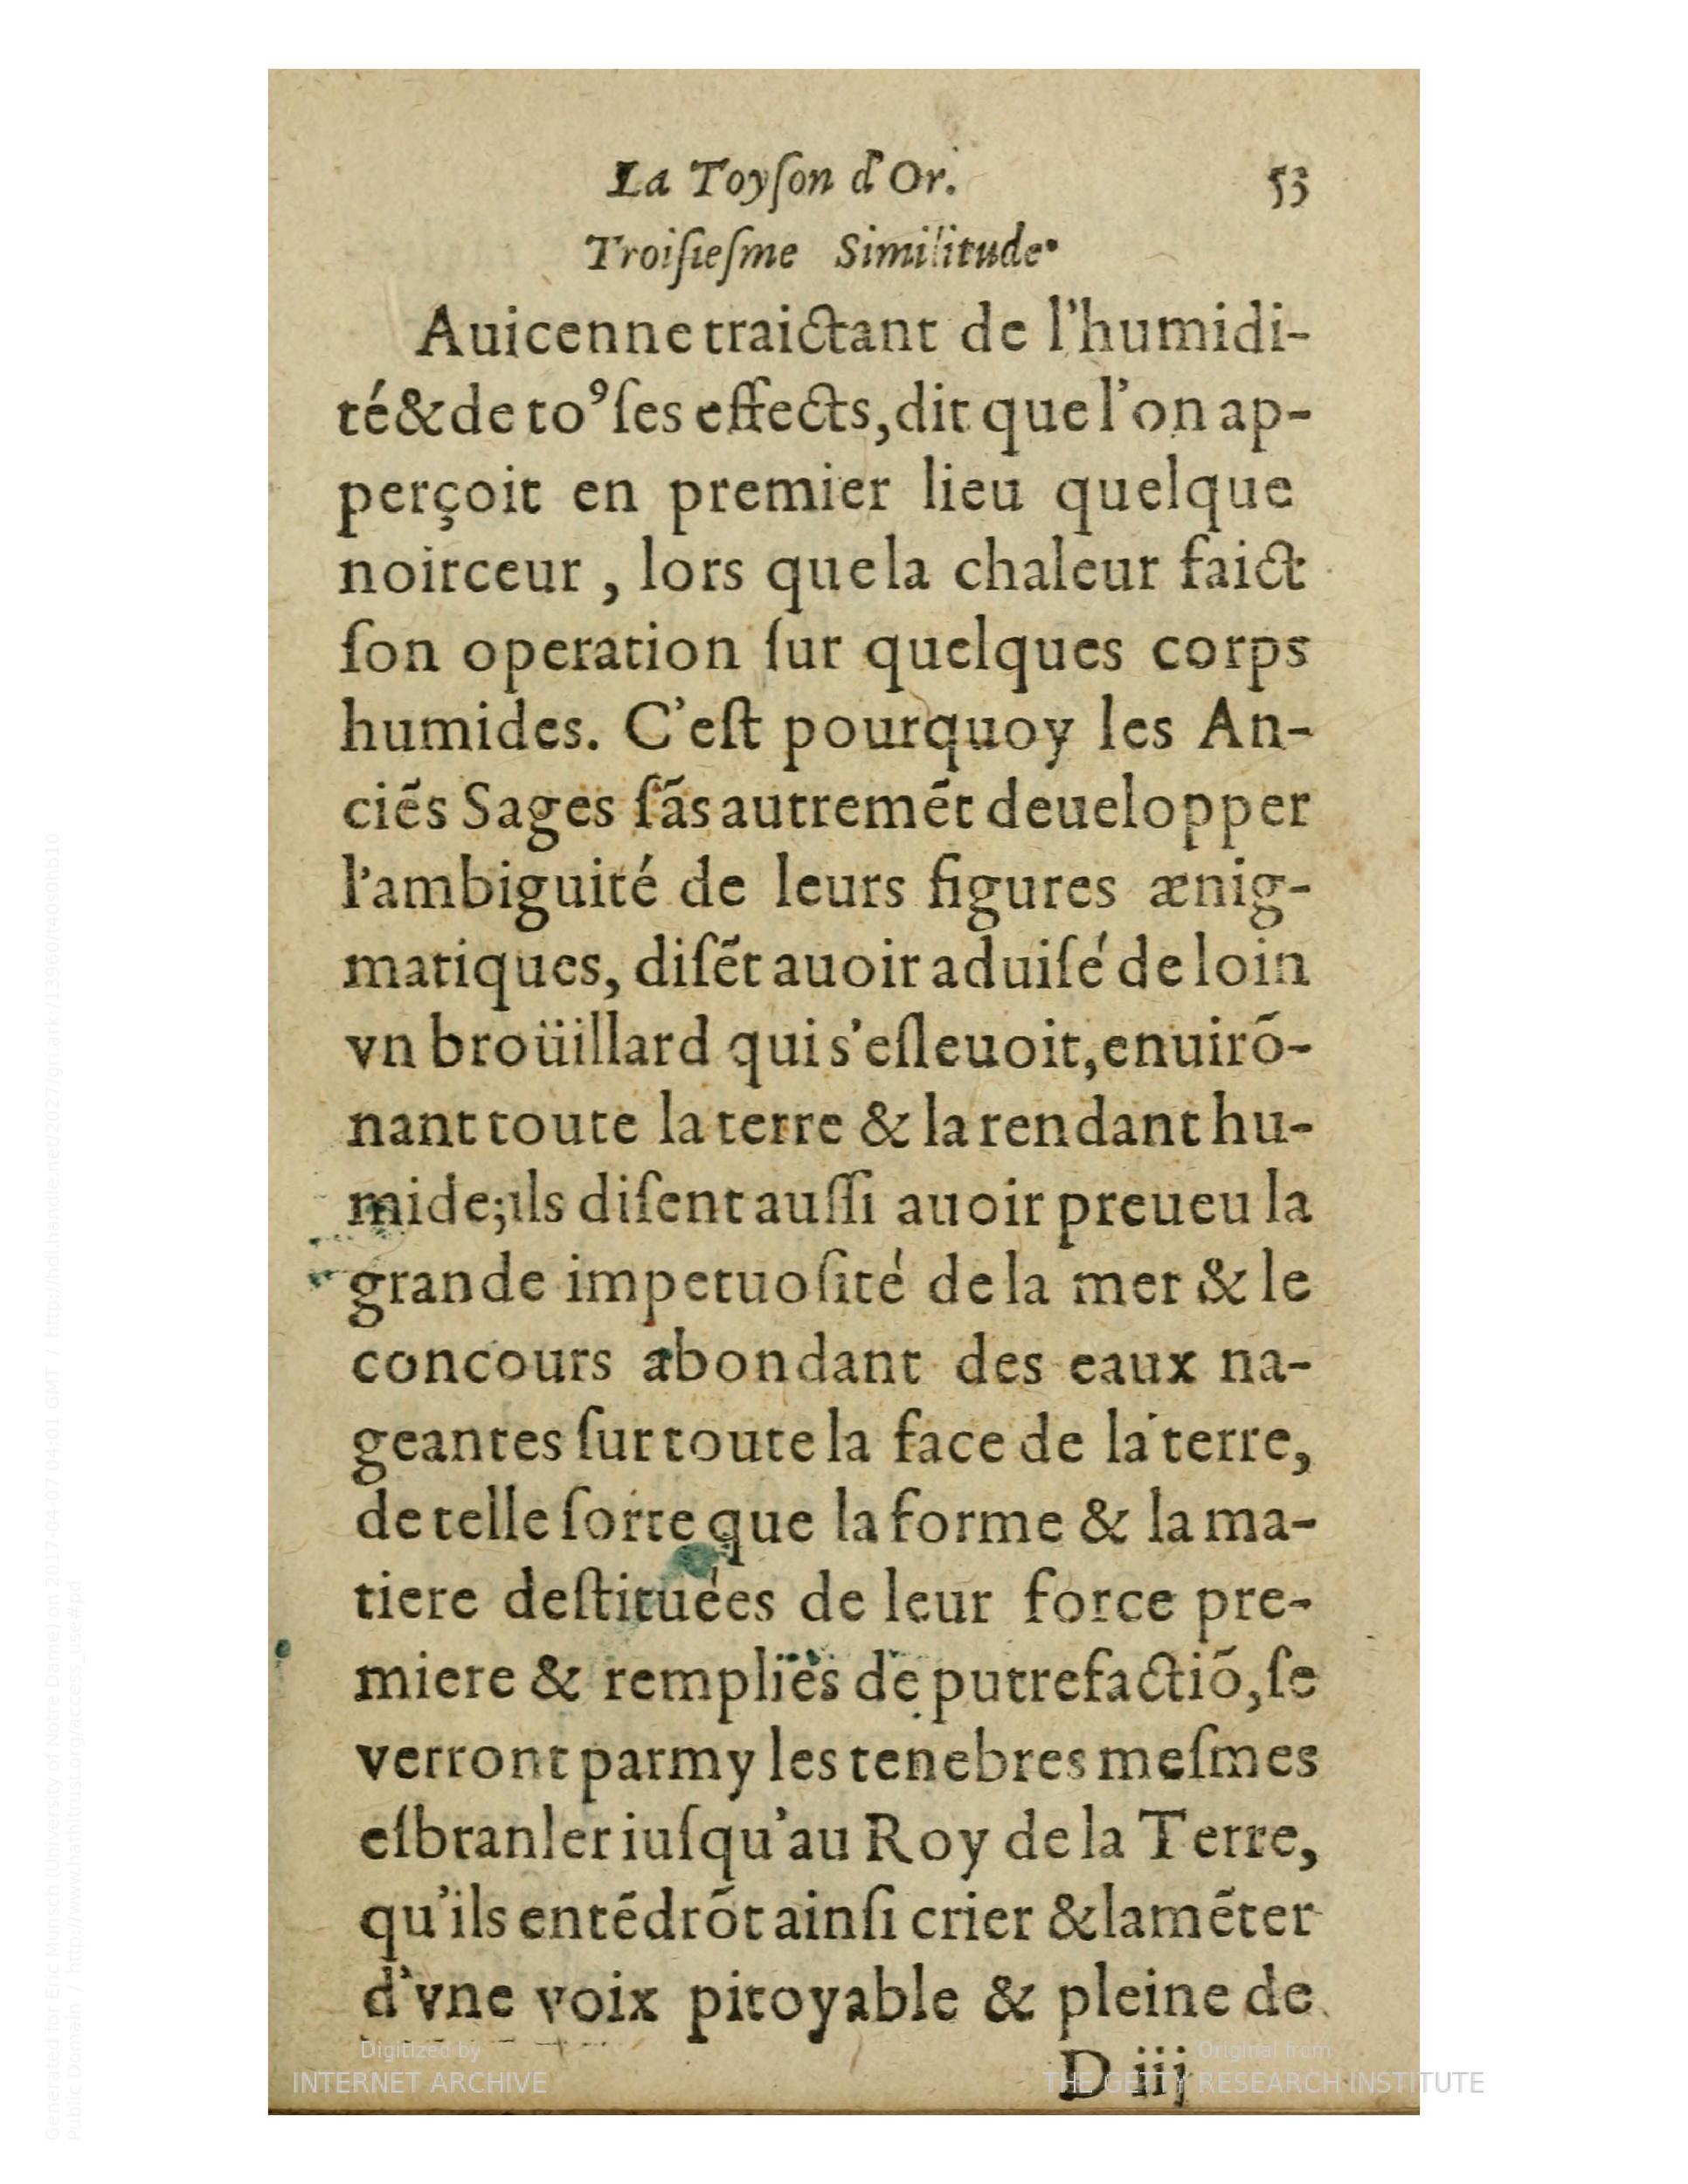 La Toyſon d'Or. 53
Troiſieſme Similitude.
Auicenne traictant de l'humidi-
té & de to⁹ ſes effects, dit que l'on ap-
perçoit en premier lieu quelque
noirceur, lors que la chaleur faict
ſon operation ſur quelques corps
humides. C'eſt pourquoy les An-
ciẽs Sages ſãs autremẽt deuelopper
l'ambiguité de leurs figures ænig-
matiques, diſẽt auoir aduiſé de loin
vn broüillard qui s'eſleuoit, enuirõ-
nant toute la terre & la rendant hu-
mide; ils diſent auſſi auoir preueu la
grande impetuoſité de la mer & le
concours abondant des eaux na-
geantes ſur toute la face de la terre,
de telle ſorte que la forme & la ma-
tiere deſtituées de leur force pre-
miere & rempliës de putrefactiõ, ſe
verront parmy les tenebres meſmes
eſbranler iuſqu'au Roy de la Terre,
qu'ils entẽdrõt ainſi crier & lamẽter
d'vne voix pitoyable & pleine de
D iij
Digitized by
INTERNET ARCHIVE
Original from
THE GETTY RESEARCH INSTITUTE
Generated for Eric Munsch (University of Notre Dame) on 2017-04-07 04:01 GMT / http://hdl.handle.net/2027/gri.ark:/13960/t40s0hb10
Public Domain / http://www.hathitrust.org/access_use#pd